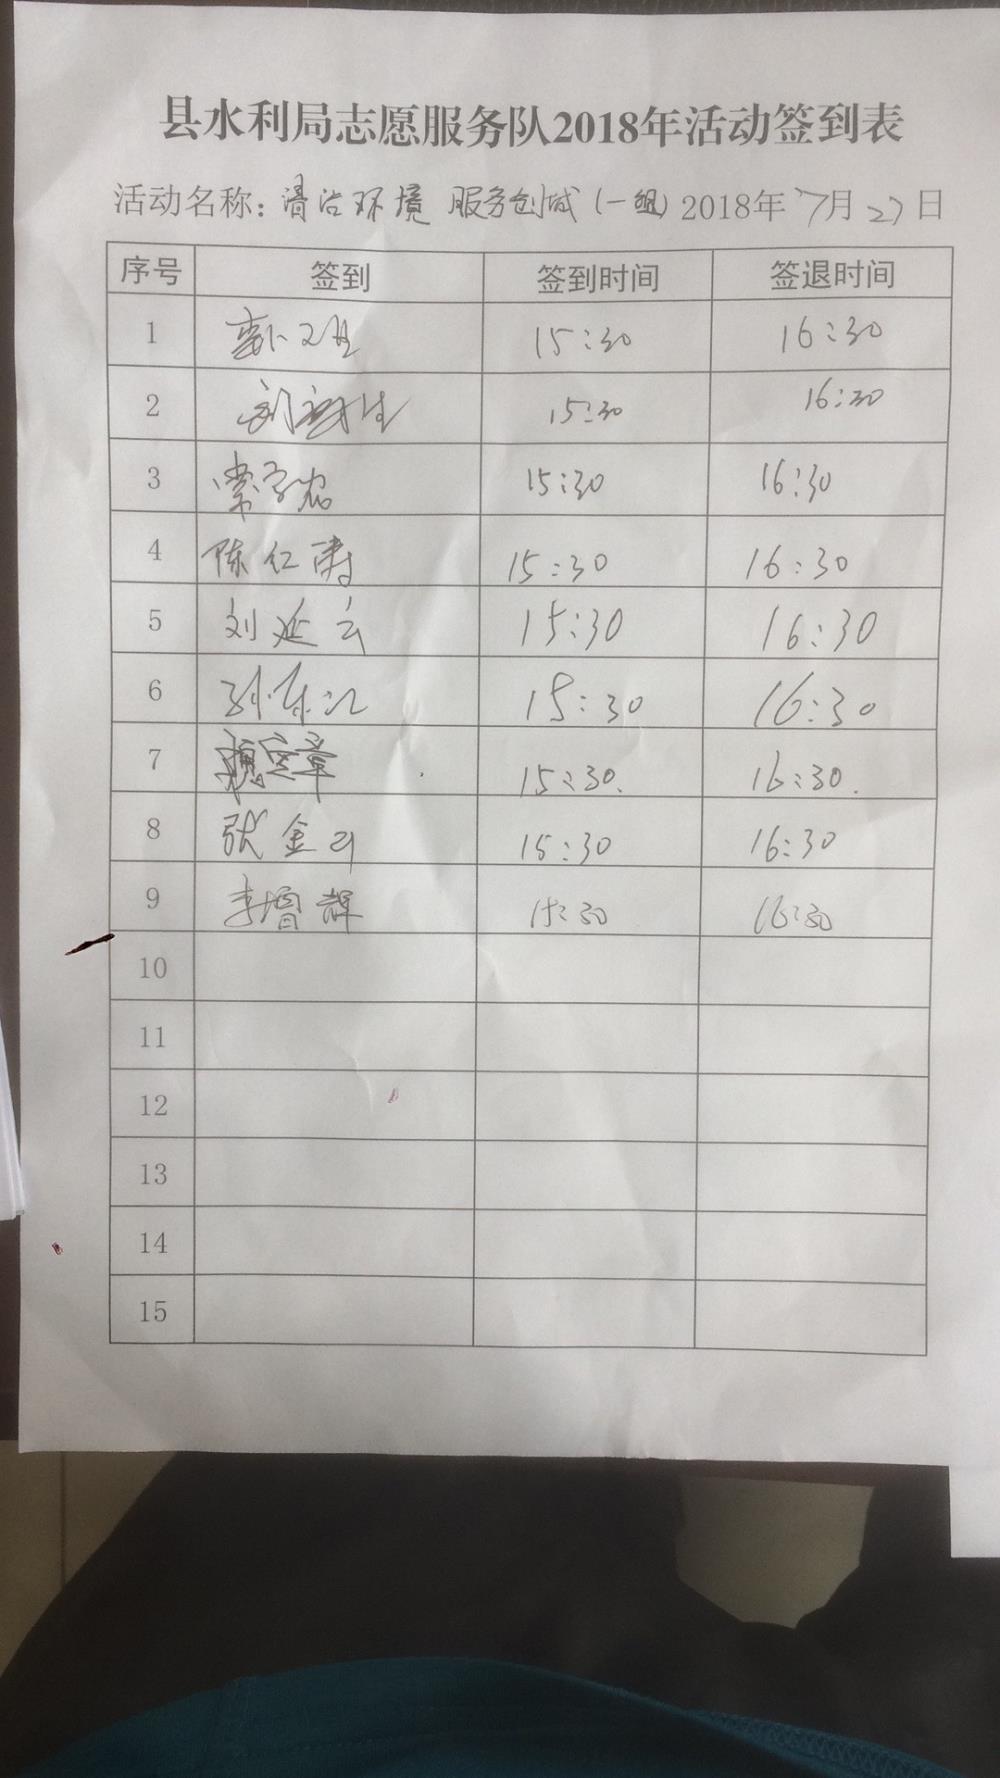 县水利局志愿服务队2018年活动签到表
活动名称：清洁环境 服务创城（一组）2018年7月27日
序号 签到 签到时间 签退时间
1 15:30 16:30
2 15:30 16:30
3 15:30 16:30
4 陈仁涛 15:30 16:30
5 刘延云 15:30 16:30
6 孙东江 15:30 16:30
7 15:30. 16:30.
8 张金 15:30 16:30
9 李增辉 15:30 16:30
10
11
12
13
14
15